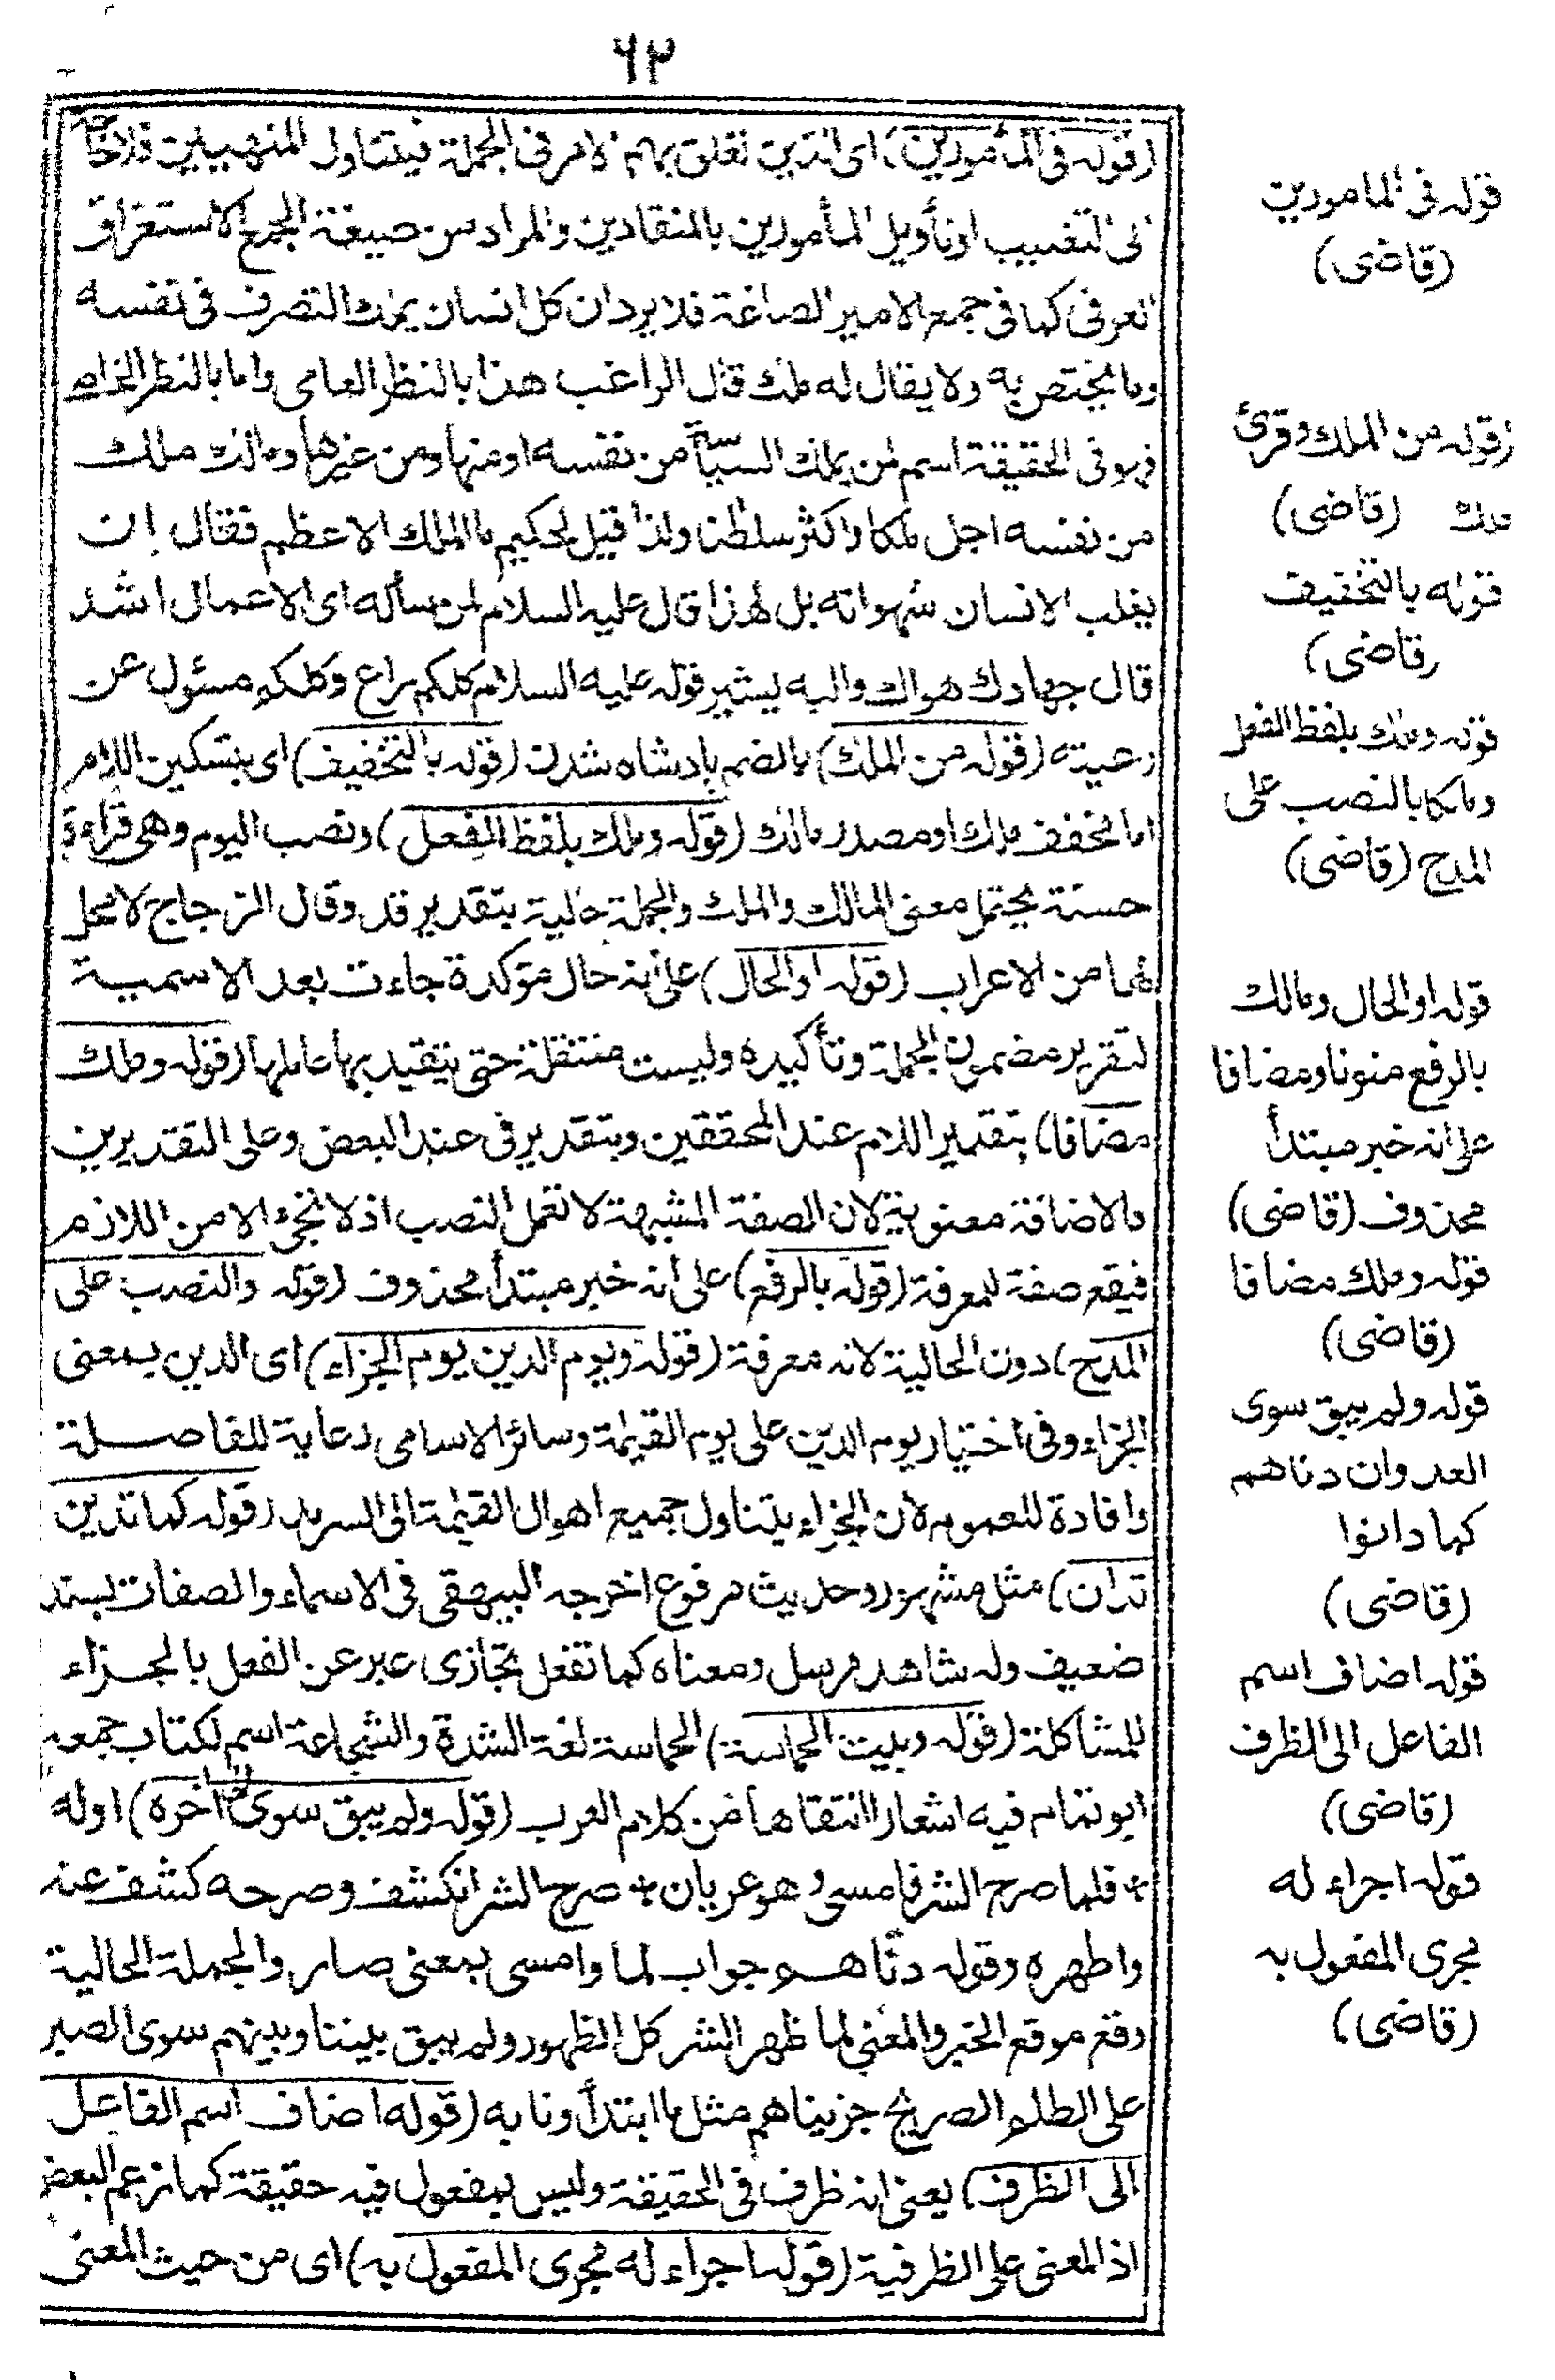 ٦٢
(قوله فى المأمورين) اى الذين تعلق بهم الامر فى الجملة فيتناول المنهيين فلاحاجة
الى التغليب او تأويل المأمورين بالمنقادين والمراد من صيغة الجمع الاستغراق
العرفى كما فى جمع الامير الصاغة فلا يرد ان كل انسان يملك التصرف فى نفسه
وما يختص به ولا يقال له ملك قال الراغب هذا بالنظر العامى واما بالنظر الخاص
فهو فى الحقيقة اسم لمن يملك السياسة من نفسه او منها ومن غيرها ومالك ملك
من نفسه اجل ملكا واكثر سلطنا ولذا قيل لحكيم ما الملك الاعظم فقال ان
يغلب الانسان شهواته بل لهذا قال عليه السلام لمن سأله اى الاعمال اشد
قال جهادك هواك واليه يشير قوله عليه السلام كلكم راع وكلكم مسئول عن
رعيته (قوله من الملك) بالضم پادشاه شدن (قوله بالتخفيف) اى بتسكين اللام
اما مخفف ملك او مصدر مالك (قوله وملك بلفظ الفعل) ونصب اليوم وهى قراءة
حسنة يحتمل معنى المالك والملك والجملة حالية بتقدير قد وقال الزجاج لا محل
لها من الاعراب (قوله او الحال) على انه حال مؤكدة جاءت بعد الاسمية
لتقرير مضمون الجملة وتأكيده وليست منتقلة حتى يتقيد بها عاملها (قوله وملك
مضافا) بتقدير اللام عند المحققين وبتقدير فى عند البعض وعلى التقديرين
فالاضافة معنوية لان الصفة المشبهة لا تعمل النصب اذ لا تجئ الا من اللازم
فيقع صفة للمعرفة (قوله بالرفع) على انه خبر مبتدأ محذوف (قوله والنصب على
المدح) دون الحالية لانه معرفة (قوله ويوم الدين يوم الجزاء) اى الدين بمعنى
الجزاء وفى اختيار يوم الدين على يوم القيمة وسائر الاسامى رعاية للفاصلة
وافادة للعموم لان الجزاء يتناول جميع اهوال القيمة الى السرمد (قوله كما تدين
تدان) مثل مشهور وحديث مرفوع اخرجه البيهقى فى الاسماء والصفات بسند
ضعيف وله شاهد مرسل ومعناه كما تفعل تجازى عبر عن الفعل بالجزاء
للمشاكلة (قوله وبيت الحماسة) الحماسة لغة الشدة والشجاعة اسم لكتاب جمع
ابو تمام فيه اشعارا انتقاها من كلام العرب (قوله ولم يبق سوى الخ آخره) اوله
* فلما صرح الشر فامسى وهو عريان * صرح الشر انكشف وصرحه كشف عنه
واظهره وقوله دناهم جواب لما وامسى بمعنى صار والجملة الحالية
وقع موقع الخبر والمعنى لما ظهر الشر كل الظهور ولم يبق بيننا وبينهم سوى الصبر
على الظلم الصريح جزيناهم مثل ما ابتدأونا به (قوله اضاف اسم الفاعل
الى الظرف) يعنى انه ظرف فى الحقيقة وليس بمفعول فيه حقيقة كما زعم البعض
اذ المعنى على الظرفية (قوله اجراء له مجرى المفعول به) اى من حيث المعنى
قوله فى المامورين
(قاضى)
(قوله من الملك وقرئ
ملك (قاضى)
قوله بالتخفيف
(قاضى)
قوله وملك بلفظ الفعل
ومالكا بالنصب على
المدح (قاضى)
قوله او الحال ومالك
بالرفع منونا ومضافا
على انه خبر مبتدأ
محذوف (قاضى)
قوله وملك مضافا
(قاضى)
قوله ولم يبق سوى
العدوان دناهم
كما دانوا
(قاضى)
قوله اضاف اسم
الفاعل الى الظرف
(قاضى)
قوله اجراء له
مجرى المفعول به
(قاضى)